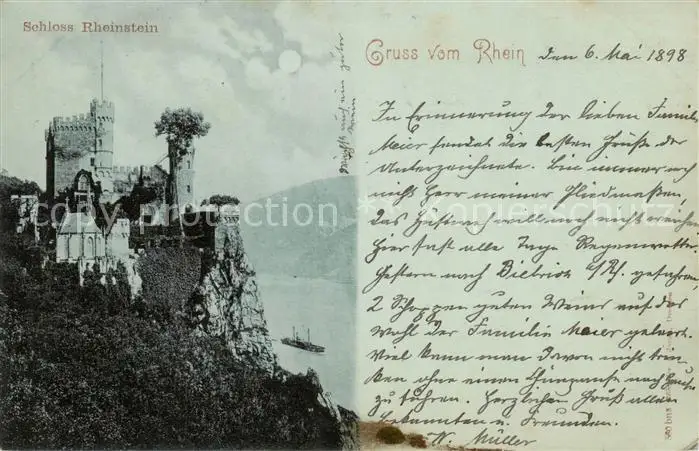 Schloss Rheinstein
Gruss vom Rhein
den 6. Mai 1898
wächst auch ein guter
Wein
In Erinnerung der lieben Familie
Meier sendet die besten Grüße der
Unterzeichnete. Bin immer noch
nicht Herr meiner Gliedmaßen,
das will noch nicht
hier fast alle Tage Regenwetter.
Gestern nach Biebrich a/Rh. gefahren
2 Schoppen guten Weins auf das
Wohl der Familie Meier geleert.
Viel kann man davon nicht trin
ken ohne einen nach Hause
zu führen. Herzlichen Gruß allen
Bekannten u. Freunden.
W. Müller
- Kopierschutz -